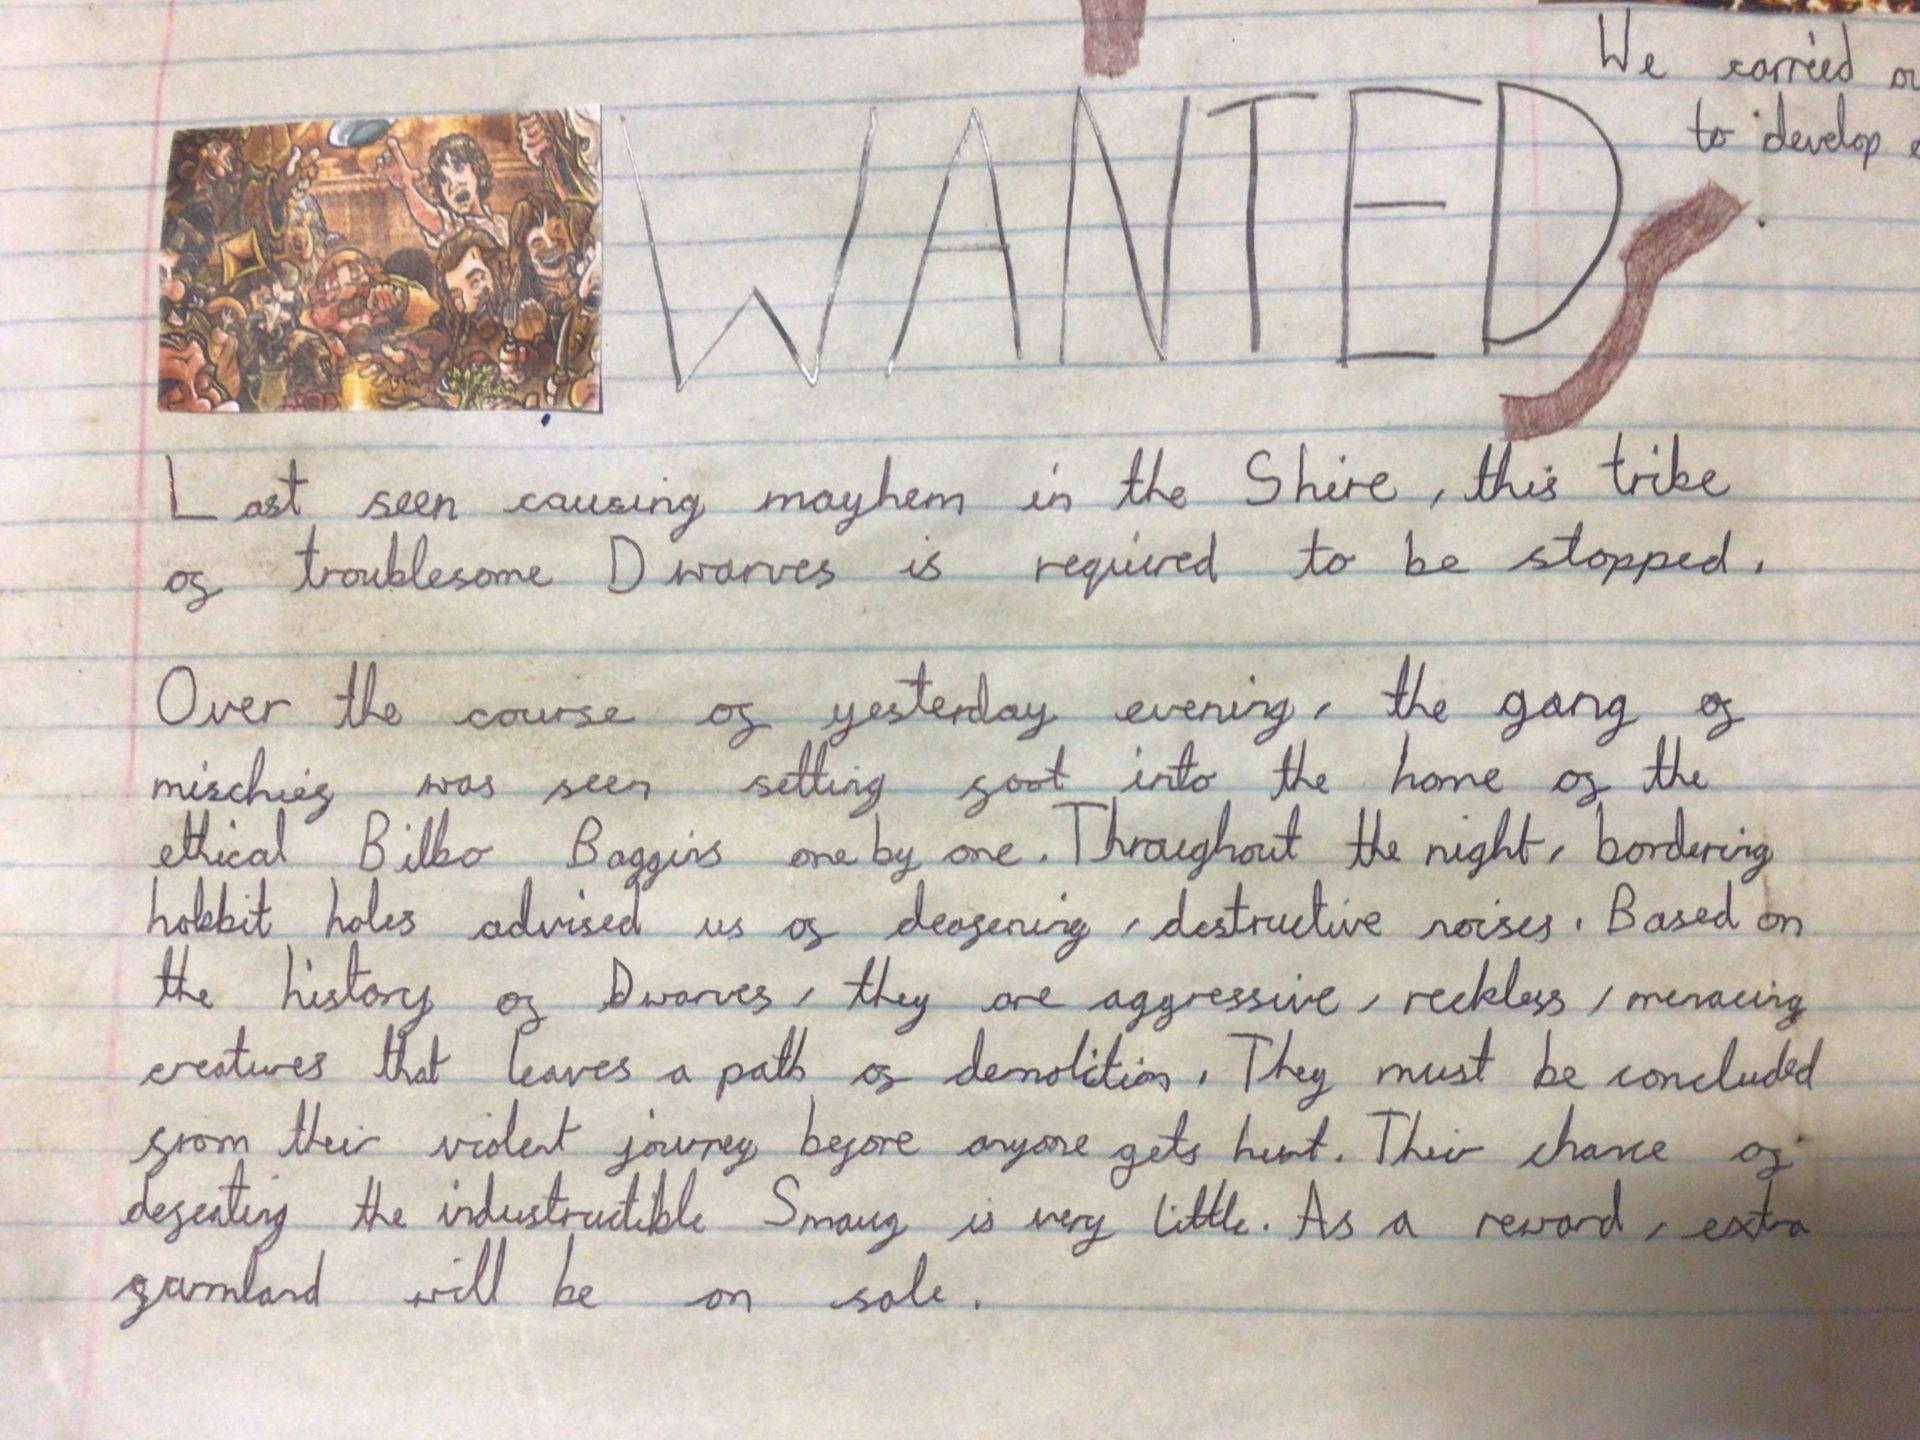 We carried
to develop
WANTED
Last seen causing mayhem in the Shire, this tribe
of troublesome Dwarves is required to be stopped.
Over the course of yesterday evening, the gang of
mischief was seen setting foot into the home of the
ethical Bilbo Baggins one by one. Throughout the night, bordering
hobbit holes advised us of deafening, destructive noises. Based on
the history of Dwarves, they are aggressive, reckless, menacing
creatures that leaves a path of demolition. They must be concluded
from their violent journey before anyone gets hurt. Their chance of
defeating the industructible Smaug is very little. As a reward, extra
farmland will be on sale.